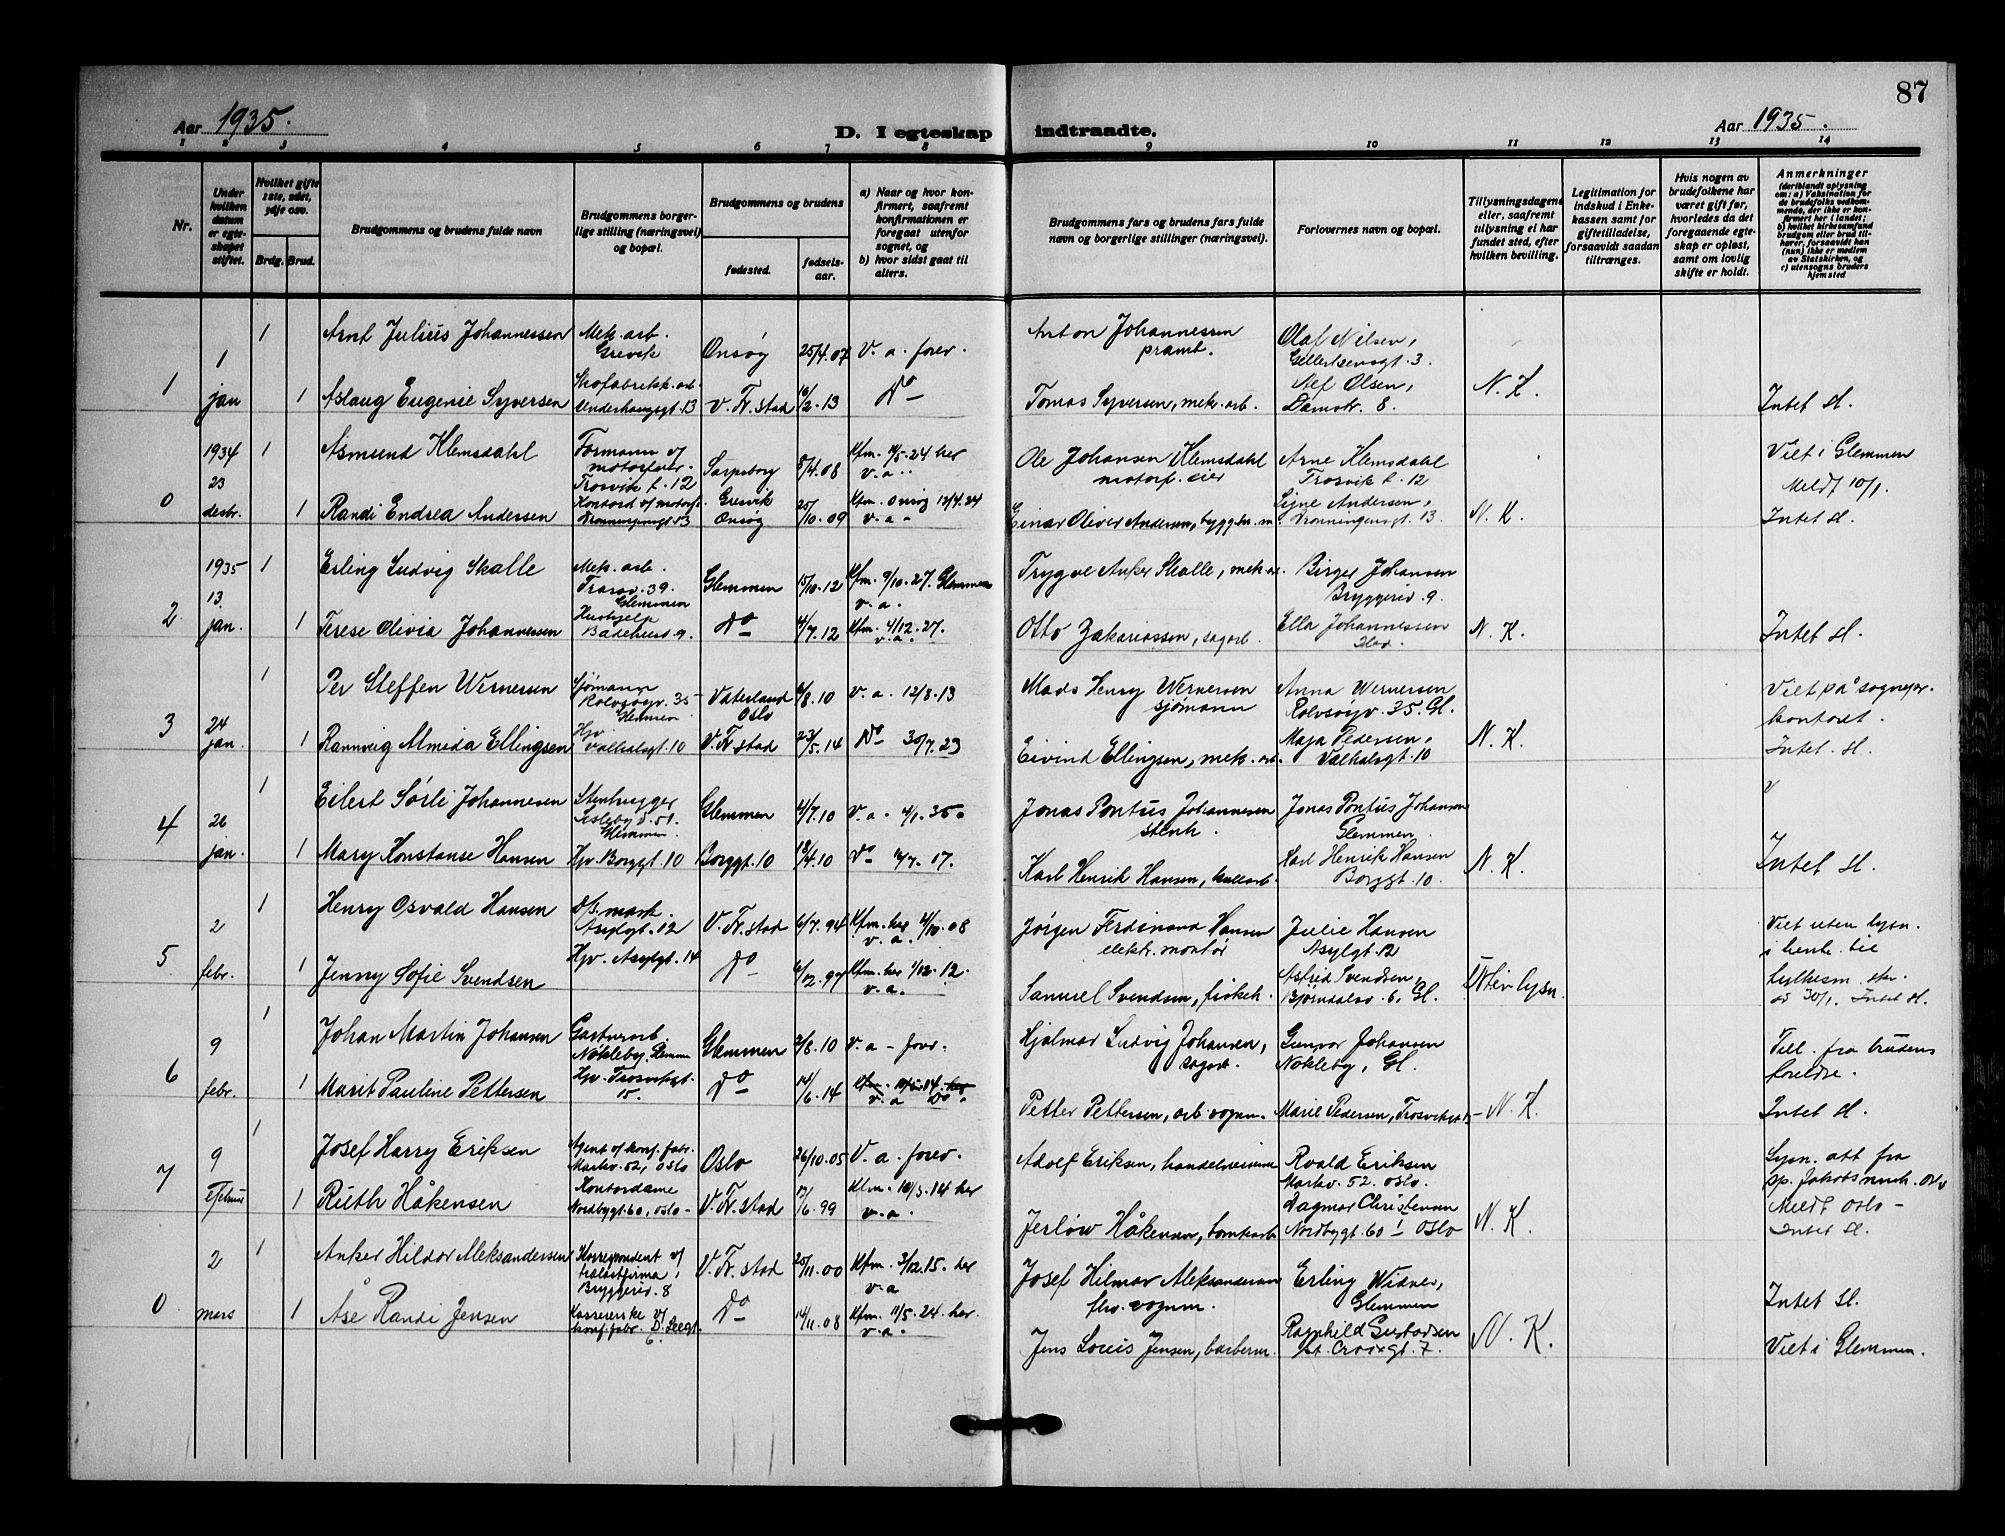 87
Aar 1935.
D. I egteskap indtraadte.
Aar 1935.
1 2 3 4 5 6 7 8 9 10 11 12 13 14
Nr.
Under hvilken datum er egteskapet stiftet.
Hvilket gifte 1ste, 2det, 3dje osv.
Brdg. Brud.
Brudgommens og brudens fulde navn
Brudgommens borgerlige stilling (næringsvei) og bopæl.
Brudgommens og brudens
fødested.
fødselsaar.
a) Naar og hvor konfirmert, saafremt konfirmationen er foregaat utenfor sognet, og
b) hvor sidst gaat til alters.
Brudgommens fars og brudens fars fulde navn og borgerlige stillinger (næringsvei).
Forlovernes navn og bopæl.
Tillysningsdagene eller, saafremt tillysning ei har fundet sted, efter hvilken bevilling.
Legitimation for indskud i Enkekassen samt for giftetilladelse, forsaavidt saadan tiltrænges.
Hvis nogen av brudefolkene har været gift før, hvorledes da det foregaaende egteskap er opløst, samt om lovlig skifte er holdt.
Anmerkninger
(deriblandt oplysning om: a) Vaksination for de brudefolks vedkommende, der ikke er konfirmert her i landet; b) hvilket kirkesamfund brudgom eller brud tilhører, forsaavidt han (hun) ikke er medlem av Statskirken, og c) utensogns bruders hjemsted
1
1 jan
1 Arnt Julius Johannessen Mek. arb. Grevik Onsøy 25/4.07 V. a. forev. Anton Johannessen pramt. Olaf Nilsen, Gellertsensgt. 3.
1 Aslaug Eugenie Syversen Skofabrikk. arb. V. Fr. stad 16/2-13 Do Tomas Syversen, mek. arb. Alf Olsen, Damstr. 8. N. K. Intet sl.
0
1934 23 desbr.
1 Asmund Klemsdahl Formann of motorfabr. Trosvik t. 12 Sarpsborg 8/4.08 Kfm. 11/5-24 her v. a. Ole Johansen Klemsdahl motorf. eier Arne Klemsdahl Trosvik t. 12 Viet i Glemmen Meldt 10/1.
1 Randi Endrea Andersen Dronningensgt 13 Gresvik Onsøy 25/10.09 Kfm. Onsøy 13/4.24 v. a. Einar Oliver Andersen, Signe Andersen, Dronningensgt. 13. N. K. Intet sl.
2
1935 13 jan.
1 Erling Ludvig Skalle Mek. arb. Trosv. 39. Glemmen Glemmen 15/10.12 Kfm. 9/10.27. Glemmen v. a. Trygve Anker Skalle, mek. ar. Birger Johansen Bryggeriv. 9
1 Terese Olivia Johannessen Hushjelp Badehusg. 9. Do 4/7.12 Kfm. 4/12.27. v. a. Otto Zakariassen, sagarb. Ella Johannessen N. K. Intet sl.
3
24 jan.
1 Per Steffen Wernersen Sjømann Rolvsøyv. 35 Glemmen Vaterland Oslo 6/8.10 V. a. 12/8.13 Mads Henry Wernersen sjømann Anna Wernersen Rolvsøyv. 35. Gl. Viet på sognepr. kontoret.
1 Rannveig Almida Ellingsen Hjv Valhalsgt. 10 V. Fr. stad 23/5.14 Do 30/7.23 Eivind Ellingsen, mek. arb. Maja Pedersen, Valhalsgt. 10 N. K. Intet sl.
4
26 jan.
1 Eilert Sørli Johannesen Stenhugger Lisleby v. 51. Glemmen. Glemmen 4/7.10 V. a. 4/1.35. Jonas Pontus Johannesen stenh. Jonas Pontus Johansen Glemmen.
1 Mary Konstanse Hansen Hjv. Borggt. 10 Borggt. 10 18/4.10 Do Karl Henrik Hansen, Karl Henrik Hansen Borggt. 10. N. K. Intet sl.
5
2 febr.
1 Henry Osvald Hansen Asylgt. 12 V. Fr. stad 6/7.94 Kfm. her 4/10.08 v. a. Jørgen Ferdinand Hansen elektr. montør Julie Hansen Asylgt. 12 Viet uten lysn. i henh. til
1 Jenny Sofie Svendsen Hjv. Asylgt. 14 Do Kfm. her 1/12.12. v. a. Samuel Svendsen, fiskeh. Astrid Svendsen, Bjørndalsv. 6, Gl. Uten lysn. 30/1. Intet sl.
6
9 febr.
1 Johan Martin Johansen Nøkleby, Glemm Glemmen 2/8.10 V. a - forev. Hjalmar Ludvig Johansen, sagarb. Gunvor Johansen Nøkleby, Gl. Till. fra brudens foreldre.
1 Marit Pauline Pettersen Hjv. Trosvikgt. 15. Do 14/6.14 v. a Do Petter Pettersen, arb. vognm. Marie Pedersen, Trosvikgt 15 N. K. Intet sl.
7
9 februar
1 Josef Harry Eriksen Agent of konf. fabr. Markv. 52, Oslo Oslo 26/10.05 V. a. forev. Adolf Eriksen, Roald Eriksen Markv. 52. Oslo. Lysn. att fra sp. Jakobs menh. Oslo
1 Ruth Håkensen Kontordame Nordbygt. 60, Oslo V. Fr. stad 17/6.99 Kfm. 10/5.14 her v. a. Håkensen, Dagmar Christensen Nordbygt. 60 I Oslo N. K. Meldt Oslo - Intet sl.
0
2 mars
1 Anker Hildor Aleksandersen Korrespondent of Bryggeriv. 8 V. Fr. stad 25/11.00 Kfm. 3/12.15. her v. a Josef Hilmar Aleksandersen vognm. Erling Widner, Glemmen Intet sl.
1 Åse Randi Jensen Kassererske of konf. fabr. Do 14/11.08 Kfm. 11/5.24. her. v. a. Jens Louis Jensen, barberm. Ragnhild Gustadsen St. Croixgt. 7. N. K. Viet i Glemmen.